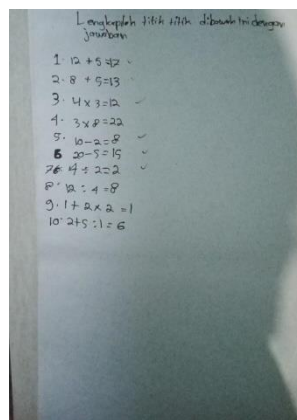 Lengkapilah titik titik dibawah ini dengan
jawaban
1. 12 + 5 = 17
2. 8 + 5 = 13
3. 4 x 3 = 12
4. 3 x 8 = 22
5. 10 - 2 = 8
6 20 - 5 = 15
7. 4 : 2 = 2
8. 12 : 4 = 8
9. 1 + 2 x 2 = 1
10. 2 + 5 : 1 = 6